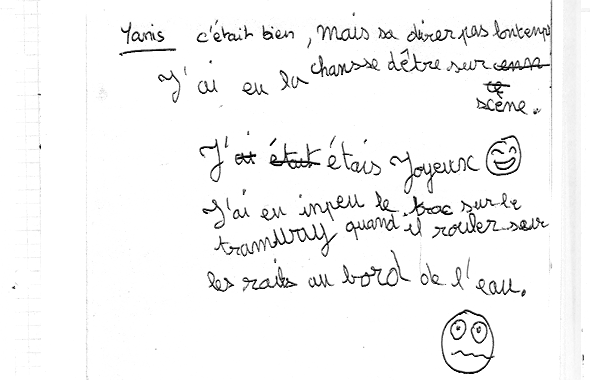 Yanis c'était bien, mais sa durer pas lontemp
J'ai eu la chansse dêtre sur
scène.
J'étais Joyeux
J'ai eu inpeu le trac sur le
tramway quand il rouler sur
les rails au bord de l'eau.